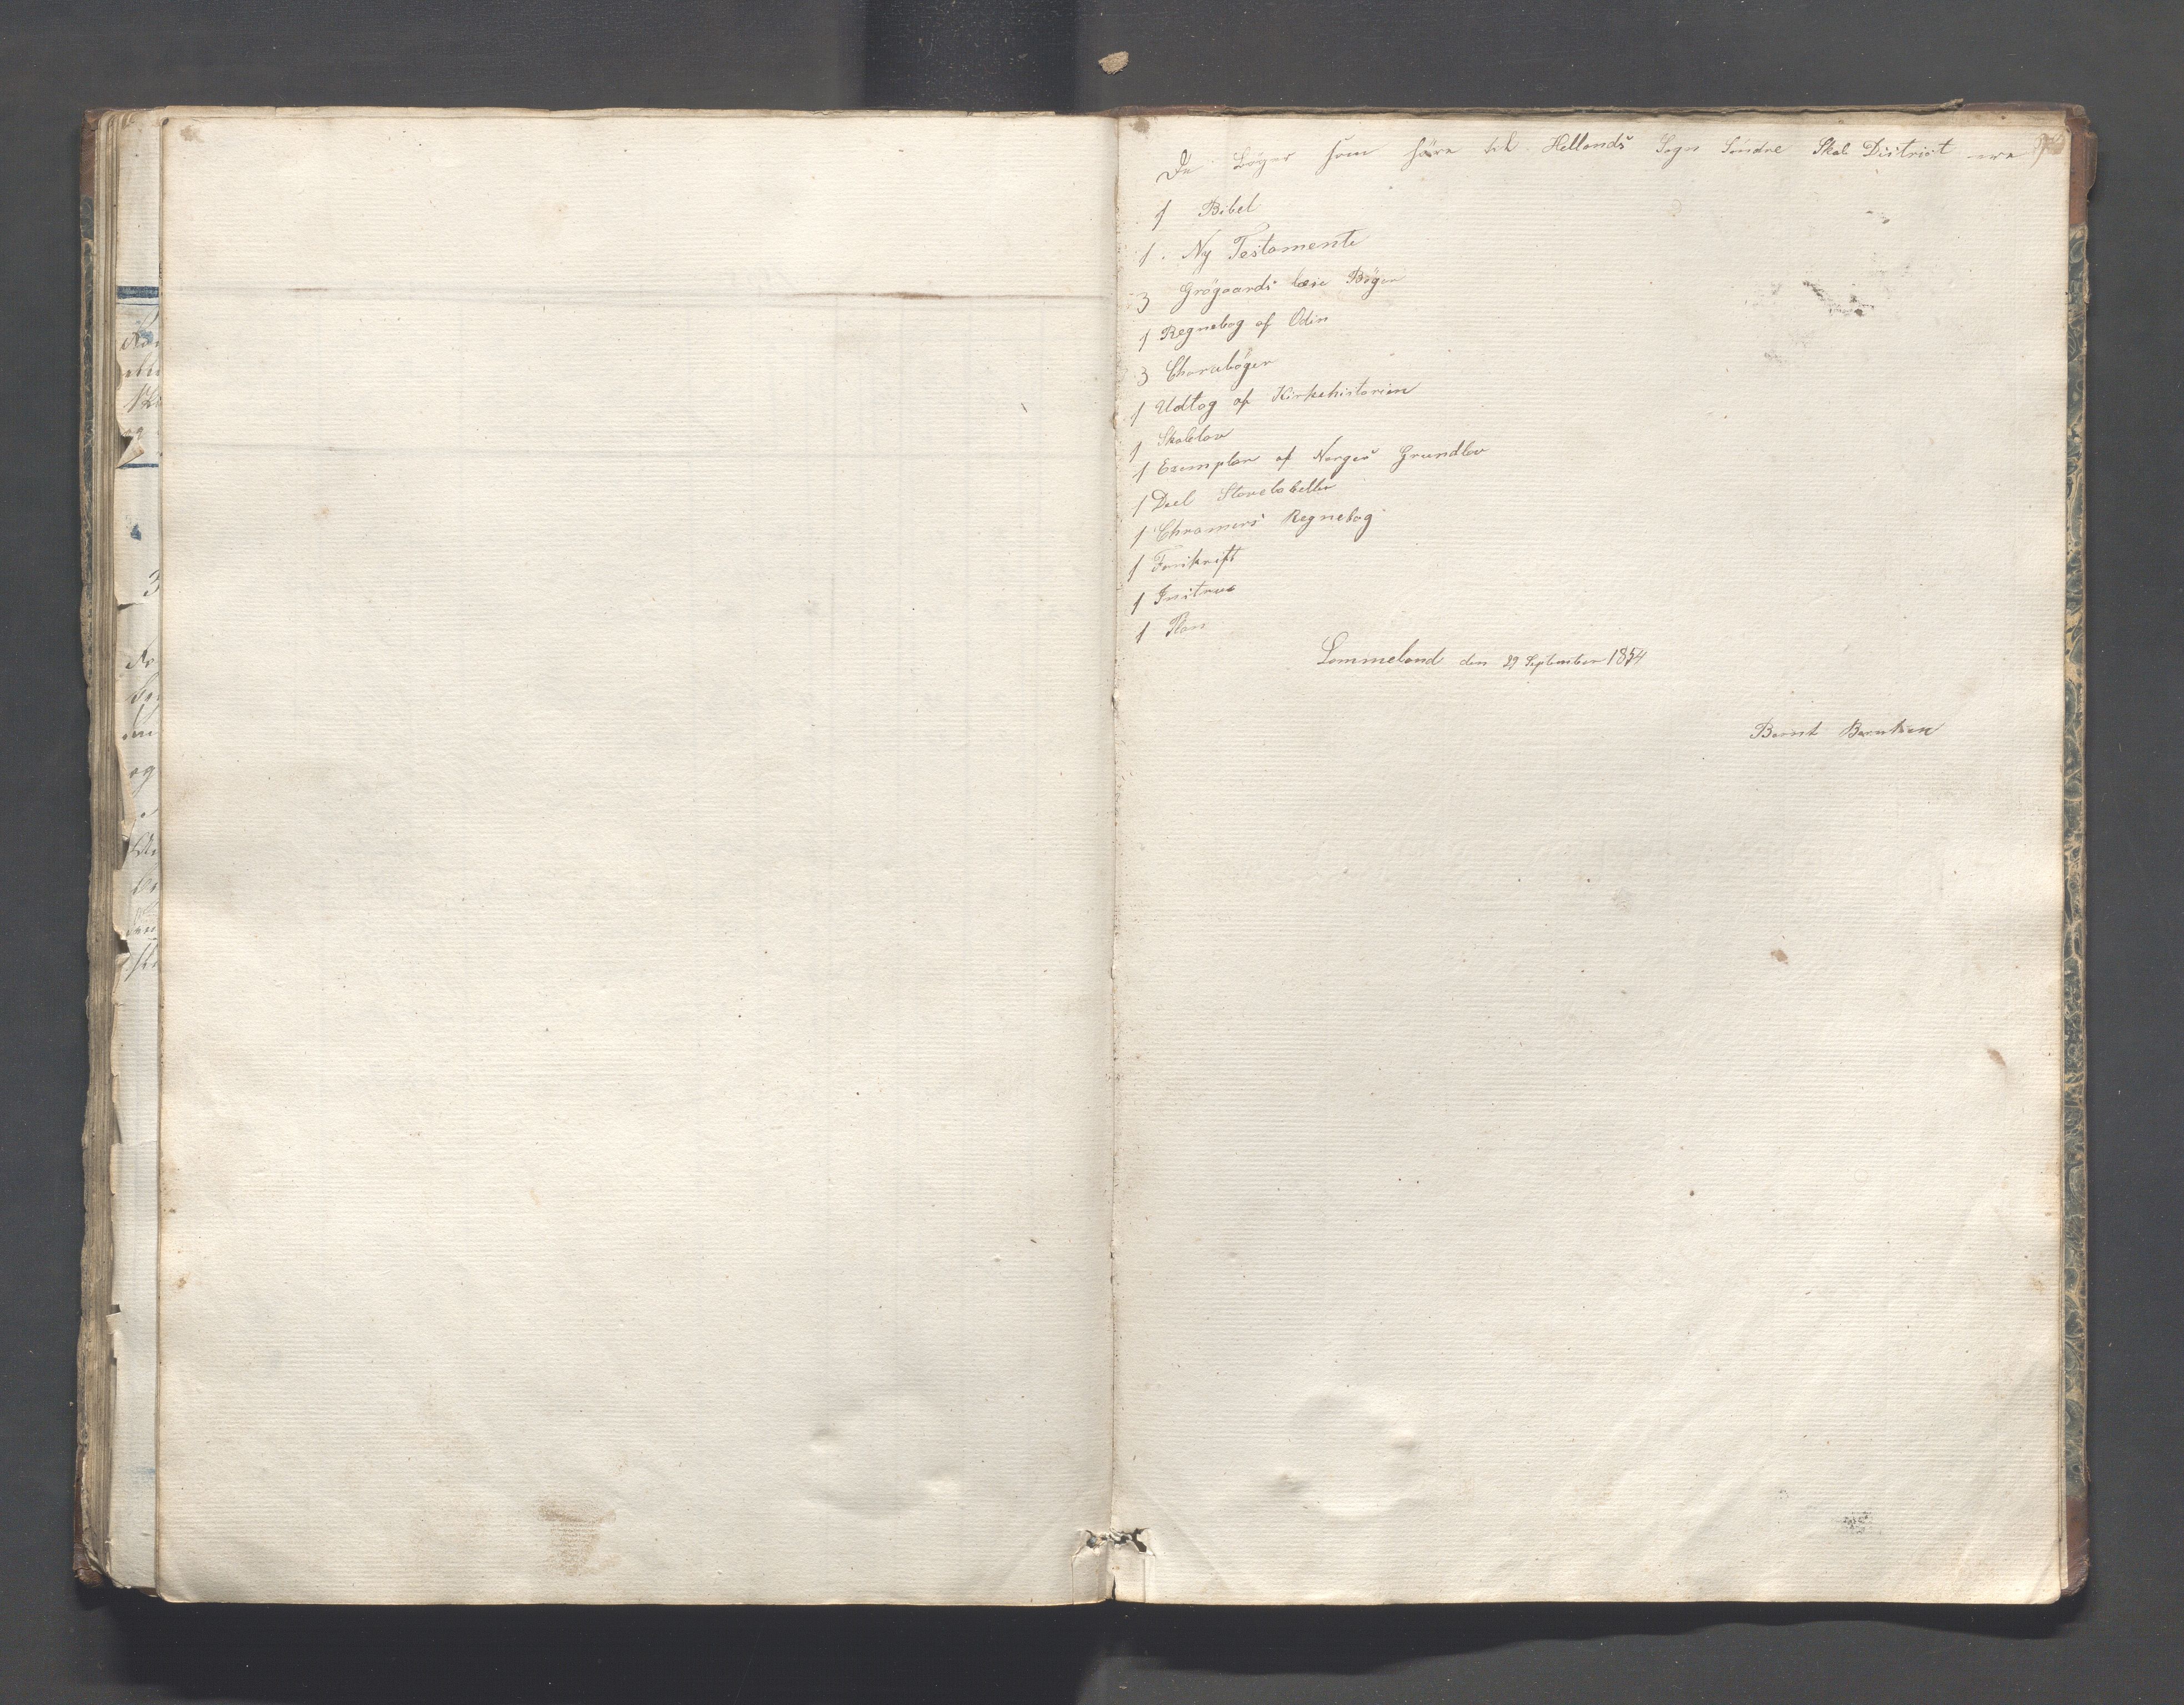 De Bøger som høre til Hellands Sogn Søndre Skole District ere
1 Bibel
1. Ny Testamente
3 Grøgaards læse Bøger
1 Regnebog af Odin
3 Choralbøger
1 Udtog af Kirkehistorien
1 Skolelov
1 Exemplar af Norges Grundlov
1 Deel Stavetabeller
1 Chramers Regnebog
1 Forskrift
1 Instrux
1 Plan
Lommeland den 29 September 1854
Bernt Berntsen